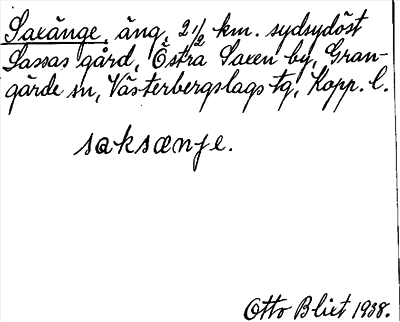 Saxänge, äng, 2 1/2 km. sydsydöst
Sassas gård, Östra Saxen by, Gran-
gärde sn, Västerbergslags tg, Kopp. l.
saksænje.
Otto Blixt 1938.